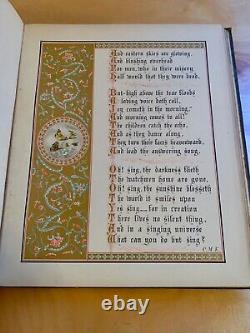 And eastern skies are glowing,
And blushing overhead
For men, who in their misery
Half would that they were dead.
But high above the tear floods
A loving voice doth call,
Joy cometh in the morning!
And morning comes to all!
The children catch the echo,
And as they dance along
They turn their faces heavenward,
And lead the answering song.
Oh! sing, the darkness flieth
The watchmen home are gone,
Oh! sing, the sunshine blesseth
The world it smiles upon
Yes sing,—for in creation
There lives no silent thing,
And in a singing universe
What can you do but sing?